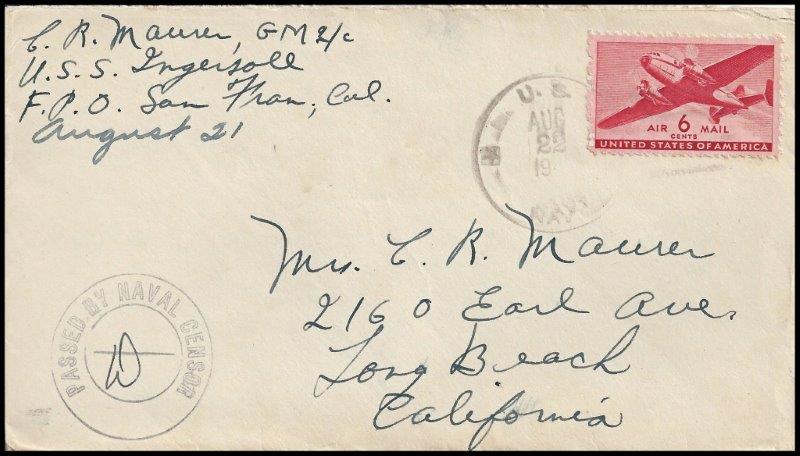 C. R. Maurer, GM 2/c
U.S.S. Ingersoll
F.P.O. San Fran, Cal.
August 21
U. S.
AUG
22
19
NAVY
AIR 6 MAIL
CENTS
UNITED STATES OF AMERICA
Mrs. C. R. Maurer
2160 Earl Ave.
Long Beach
California
PASSED BY NAVAL CENSOR